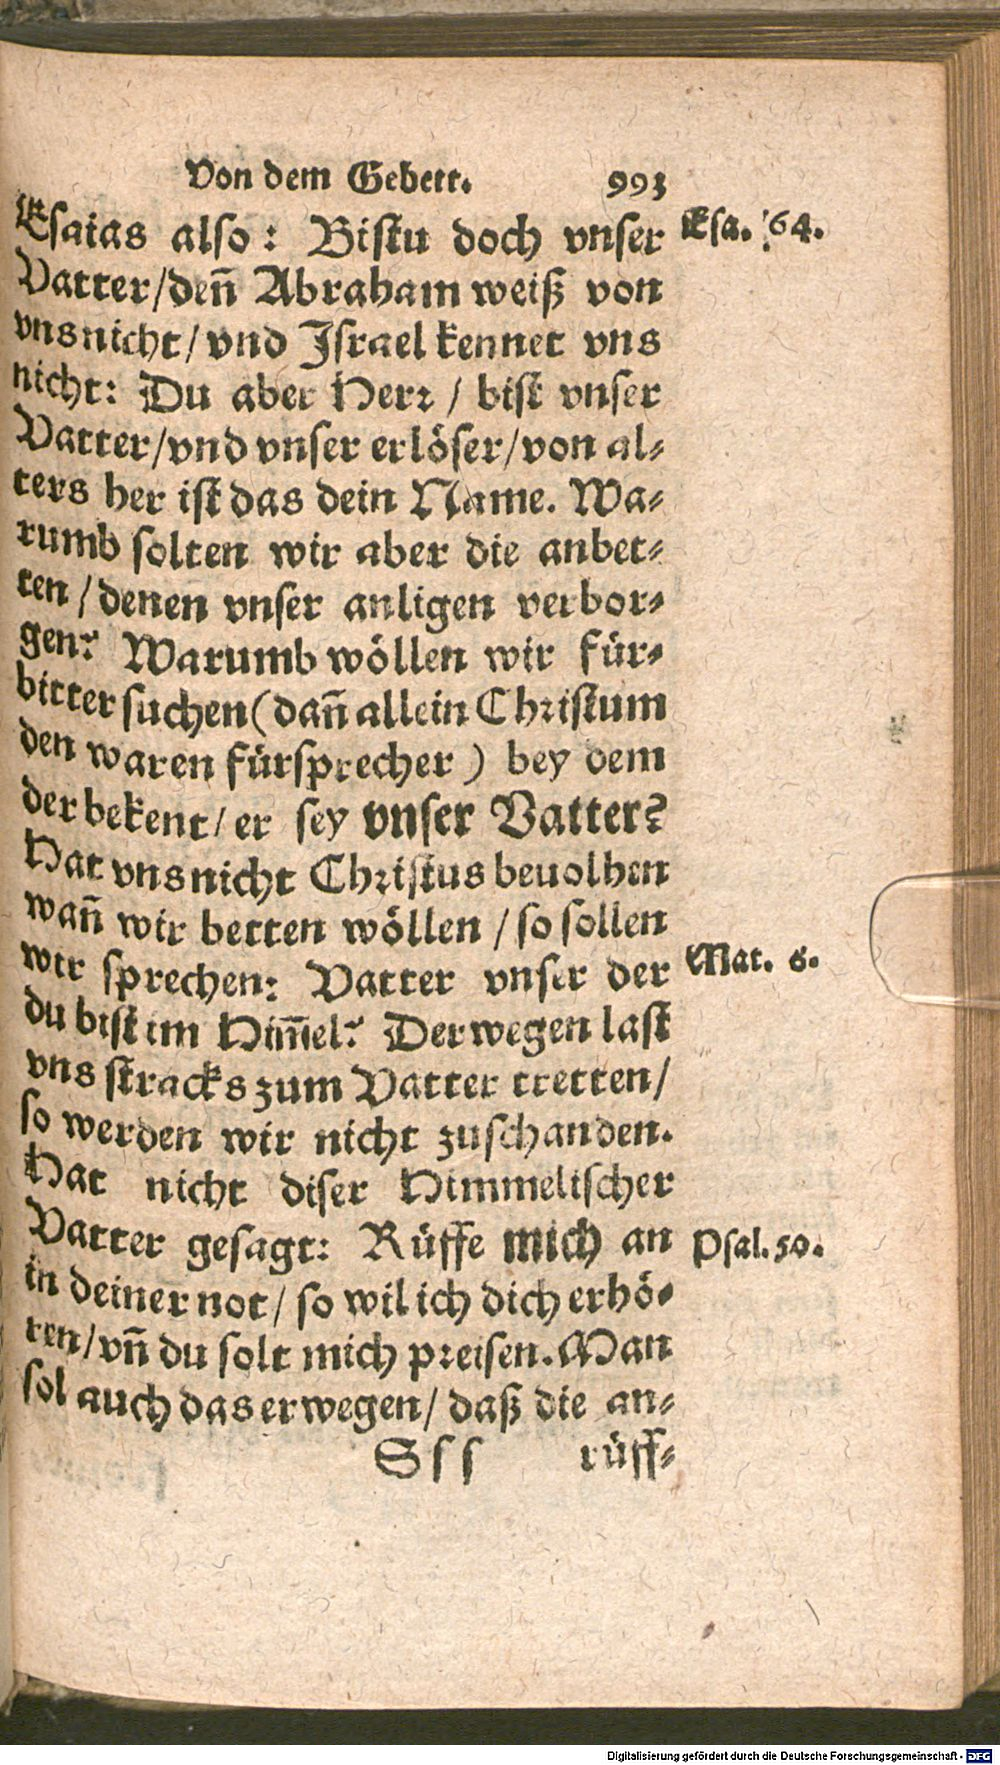 Von dem Gebett. 993
Esaias also: Bistu doch vnser Esa. 64.
Vatter/deñ Abraham weiß von
vns nicht/ vnd Israel kennet vns
nicht: Du aber Herꝛ / bist vnser
Vatter/vnd vnser erlöser/von al-
ters her ist das dein Name. Wa-
rumb solten wir aber die anbet-
ten / denen vnser anligen verbor-
gen? Warumb wöllen wir für-
bitter suchen (dañ allein Chꝛistum
den waren fürsprecher) bey dem
der bekent/ er sey vnser Vatter?
Hat vns nicht Chꝛistus beuolhen
wañ wir betten wöllen / so sollen
wir sprechen: Vatter vnser der Mat. 6.
du bist im Him̃el? Derwegen last
vns stracks zum Vatter tretten/
so werden wir nicht zuschanden.
Hat nicht diser Himmelischer
Vatter gesagt: Rüffe mich an Psal. 50.
in deiner not/ so wil ich dich erhö-
ren/ vñ du solt mich pꝛeisen. Man
sol auch das erwegen/ daß die an-
Sss rüff-
Digitalisierung gefördert durch die Deutsche Forschungsgemeinschaft - DFG